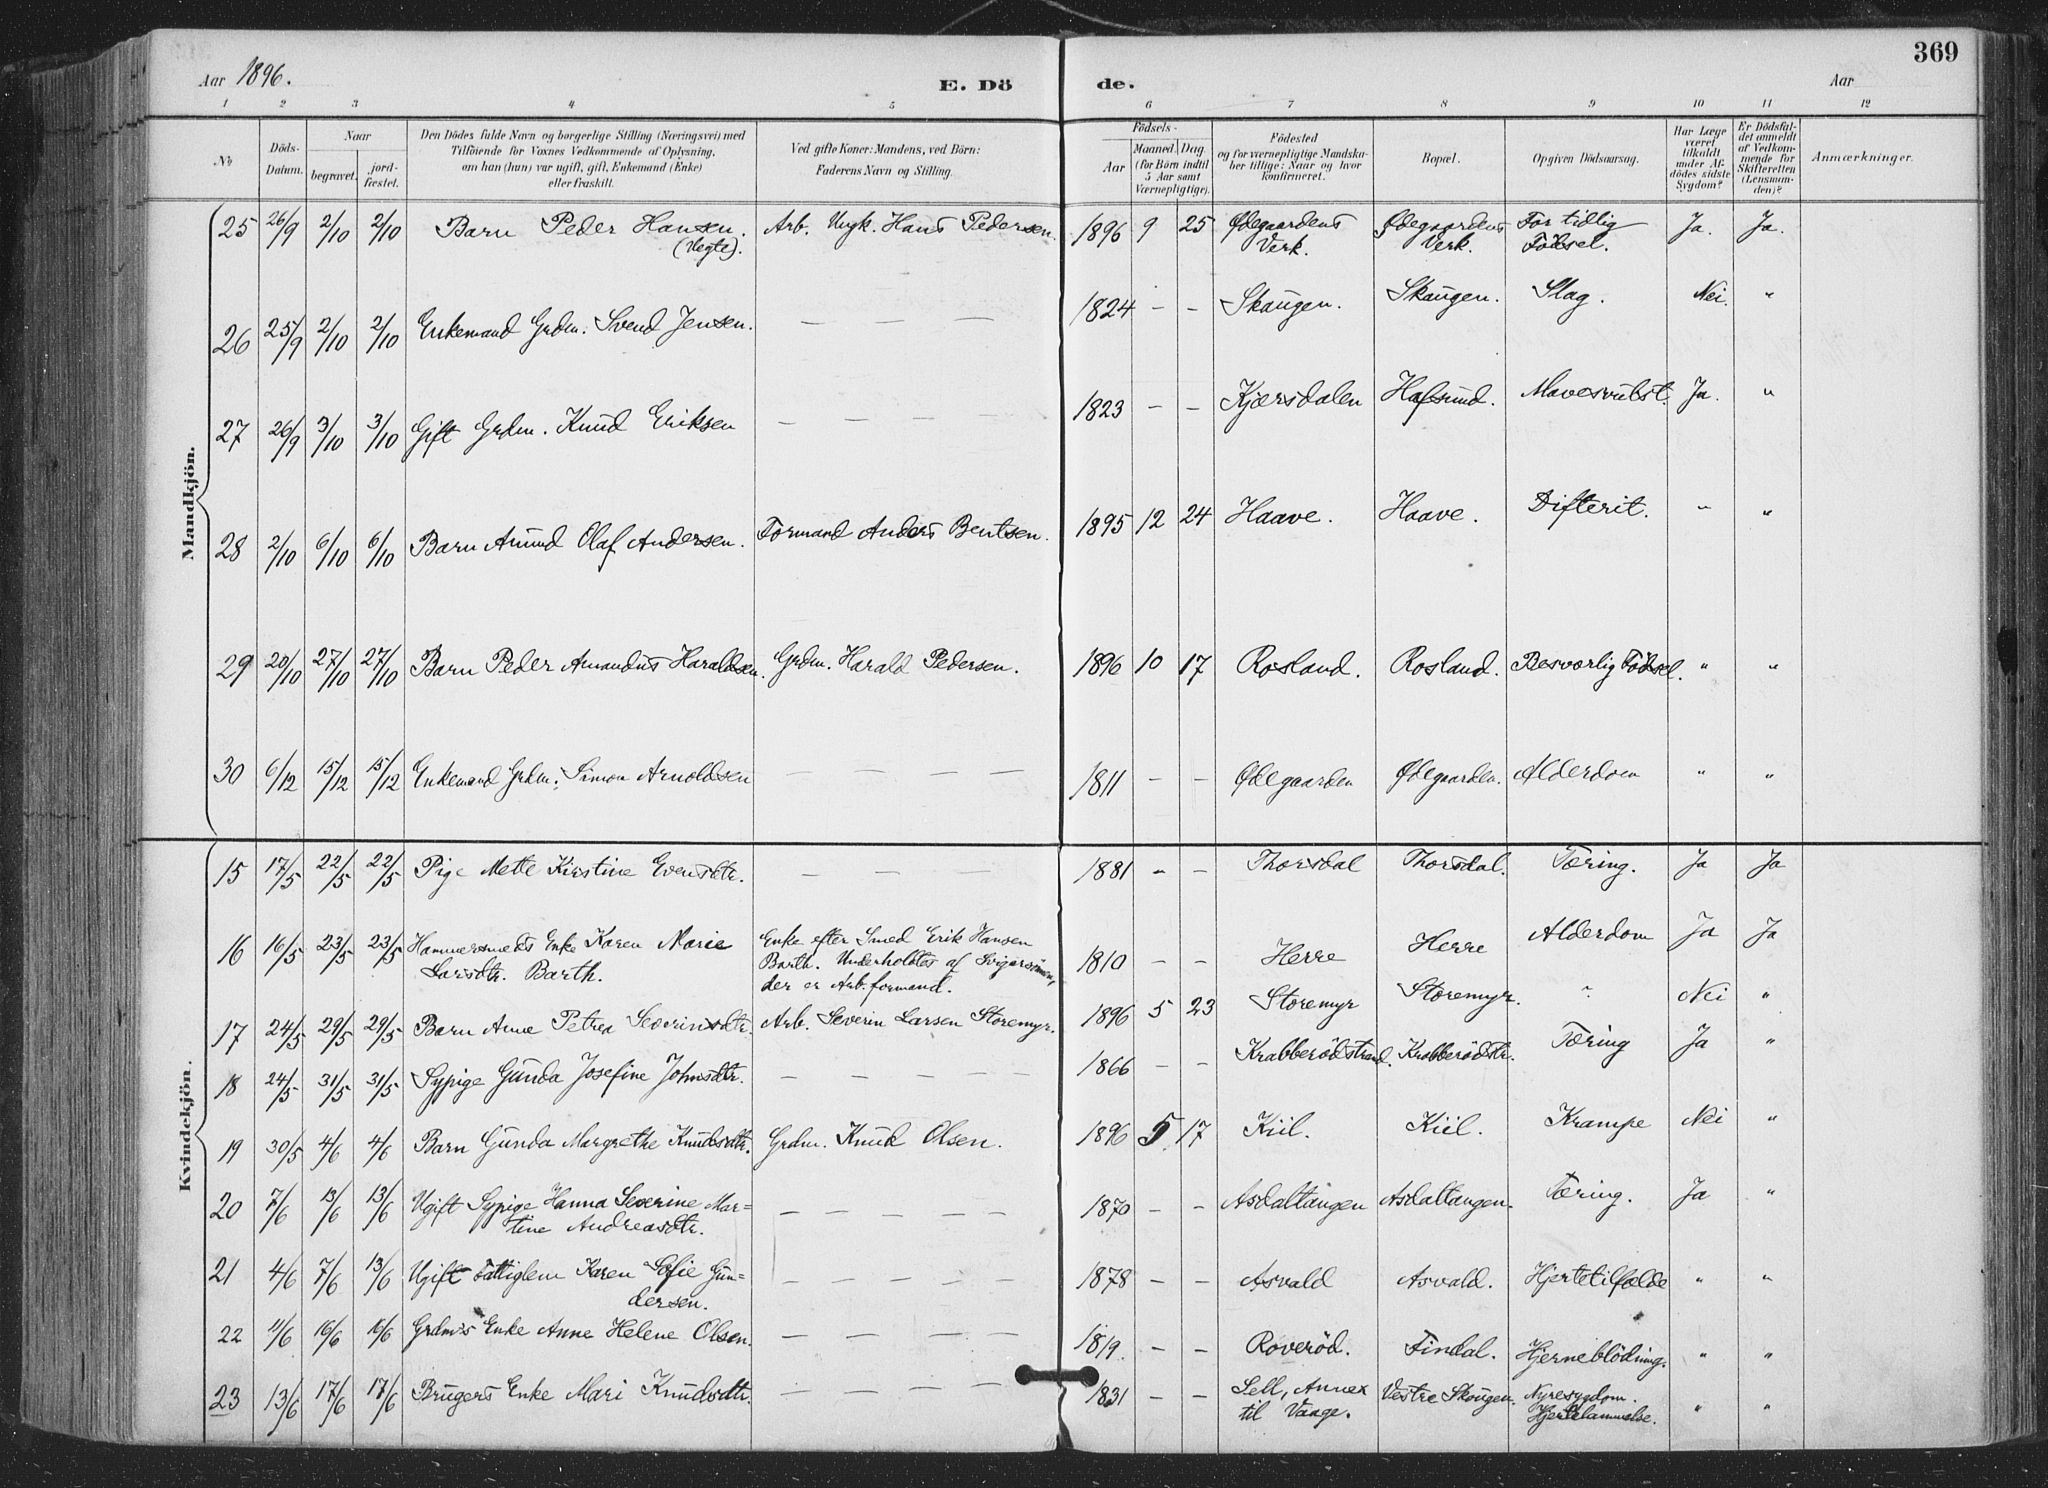 Aar 1896. E. Dö de. Aar 369
1 2 3 4 5 6 7 8 9 10 11 12
No
Döds-Datum.
Naar
begravet.
jord-fæstet.
Den Dödes fulde Navn og borgerlige Stilling (Næringsvei) med
Tilföiende for Voxnes Vedkommende af Oplysning,
om han (hun) var ugift, gift, Enkemand (Enke)
eller fraskilt.
Ved gifte Koner: Mandens, ved Börn:
Faderens Navn og Stilling.
Födsels-
Aar
Maaned. Dag.
(for Börn indtil
5 Aar samt
Værnepligtige).
Födested
og for værnepligtige Mandska-
ber tillige: Naar og hvor
konfirmeret.
Bopæl.
Opgiven Dödsaarsag.
Har Læge
været
tilkaldt
under Af-
dödes sidste
Sygdom?
Er Dödsfal-
det anmeldt
af Vedkom-
mende for
Skifteretten
(Lensman-
den)?
Anmærkninger.
Mandkjön.
25 26/9 2/10 2/10 Barn Peder Hansen. (Vegte). Arb. Ungk. Hans Pedersen. 1896 9 25 Ødegaardens Verk. Ødegaardens Verk. For tidlig Födsel. Ja. Ja.
26 25/9 2/10 2/10 Enkemand Grdm. Svend Jensen. — — — — 1824 - - Skaugen. Skaugen. Slag. Nei. "
27 26/9 3/10 3/10 Gift Grdm. Knud Eriksen — — — — 1823 - - Kjærsdalen Hafsund. Mavesvulst. Ja. "
28 2/10 6/10 6/10 Barn Amund Olaf Andersen. Formand Anders Bentsen. 1895 12 24 Haave. Haave. Difterit. " "
29 20/10 27/10 27/10 Barn Peder Amandus Haraldsen. Grdm. Harald Pedersen. 1896 10 17 Rosland. Rosland. Besværlig Födsel. " "
30 6/12 15/12 15/12 Enkemand Grdm. Simon Arnoldsen — — — — — 1811 - - Ødegaarden Ødegaarden. Alderdom " "
Kvindekjön.
15 17/5 22/5 22/5 Pige Mette Kirstine Evensdtr. — — — — 1881 " - Thorsdal Thorsdal. Tæring. Ja Ja
16 16/5 23/5 23/5 Hammersmeds Enke Karen Marie Enke efter Smed Erik Hansen 1810 - - Herre Herre Alderdom Ja Ja
Larsdtr. Barth. Barth. Underholdtes af Svigersönnen,
der er Arb.formand.
17 24/5 29/5 29/5 Barn Anne Petrea Severinsdtr. Arb. Severin Larsen Storemyr. 1896 5 23 Storemyr Storemyr. ? Nei "
18 24/5 31/5 31/5 Sypige Gunda Josefine Johnsdtr. — — — — — 1866 - - Krabberödstrand. Krabberödstr. Tæring Ja "
19 30/5 4/6 4/6 Barn Gunda Margrethe Knudsdtr. Grdm. Knud Olsen. 1896 5 17 Kiil. Kiil. Krampe Nei "
20 7/6 13/6 13/6 Ugift Sypige Hanna Severine Mar= — — — — — 1870 - - Asdaltangen Asdaltangen. Tæring. Ja "
tine Andreasdtr.
21 4/6 7/6 13/6 Ugift Fattiglem Karen Sofie Gun= — — — — — 1878 - - Asvald Asvald. Hjertetilfælde " "
dersen.
22 11/6 16/6 16/6 Grdm's Enke Anne Helene Olsen. — — — — — 1819. - - Roveröd. Findal. Hjerneblödning. " "
23 13/6 17/6 17/6 Brugers Enke Mari Knudsdtr. — — — — — 1831 - - Sell, Annex Vestre Skougen. Nyresygdom. " "
til Vaage. Hjertelammelse.